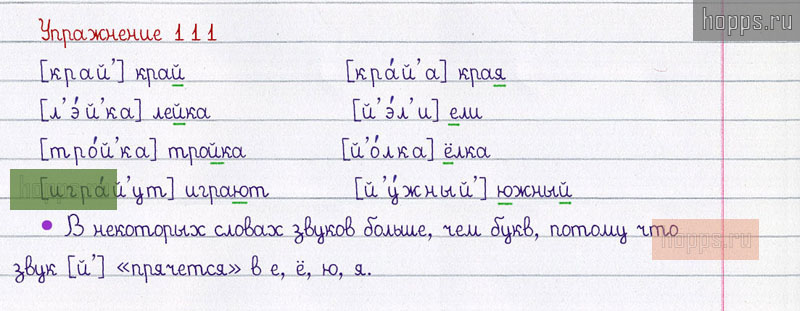 hopps.ru
Упражнение 111
[край’] край [кра́й’а] края
[л’э́й’ка] лейка [й’э́л’и] ели
[тро́й’ка] тройка [й’о́лка] ёлка
[игра́й’ут] играют [й’у́жный’] южный
• В некоторых словах звуков больше, чем букв, потому что
hopps.ru
звук [й’] «прячется» в е, ё, ю, я.